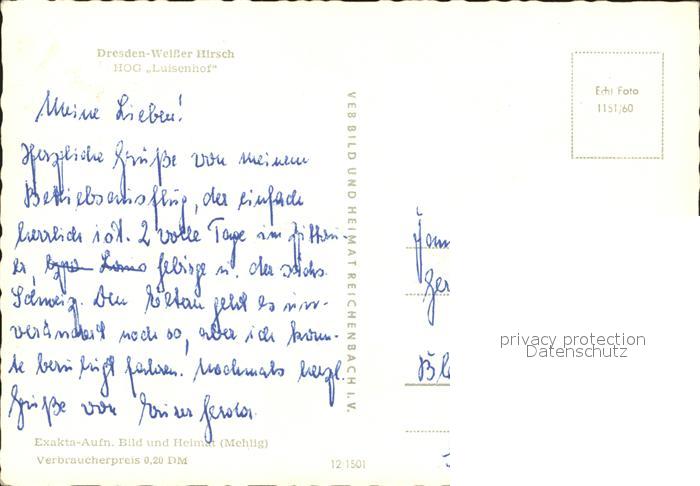 Dresden-Weißer Hirsch
HOG „Luisenhof“
Echt Foto
1151/60
Meine Lieben!
Herzliche Grüße von meinem
Betriebsausflug, der einfach
herrlich ist. 2 volle Tage im Zittau-
er, gebirge u. der sächs.
Schweiz. Den Eltern geht es unv-
verändert noch so, aber ich konn-
te beruhigt fahren. Nochmals herzl.
Grüße von Eurer
VEB BILD UND HEIMAT REICHENBACH I. V.
privacy protection
Datenschutz
Exakta-Aufn. Bild und Heimat (Mehlig)
Verbraucherpreis 0,20 DM
12 1501